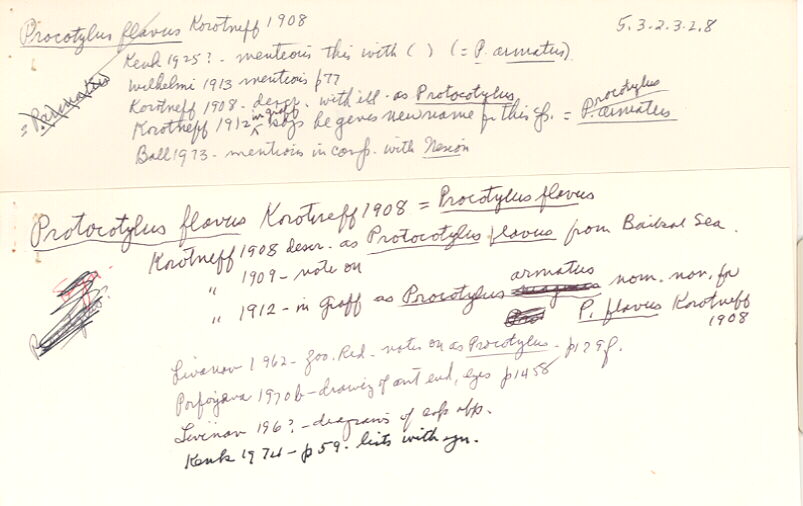 Procotylus flavus Korotneff 1908
5.3.2.3.2.8
Kenk 1925? - mentions this with ( ) (= P. armatus)
Wilhelmi 1913 mentions p77
Korotneff 1908 - descr. with ill. as Protocotylus
Korotneff 1912 - in Graff says he gives new name for this sp. = Procotylus P. armatus
= P. armatus
Ball 1973 - mentions in conf. with Nexion
Protocotylus flavus Korotneff 1908 = Procotylus flavus
Korotneff 1908 descr. as Protocotylus flavus from Baikal Sea.
" 1909 - note on
" 1912 - in Graff as Procotylus armatus nom. nov. for
P. flavus Korotneff
1908
Livanov 1962 - Zoo. Red. notes on as Procotylus - p179f.
Porfirjeva 1970b - drawing of ant end, eyes p1458
Livinov 196? - diagrams of cop app.
Kenk 1974 - p59. lists with syn.